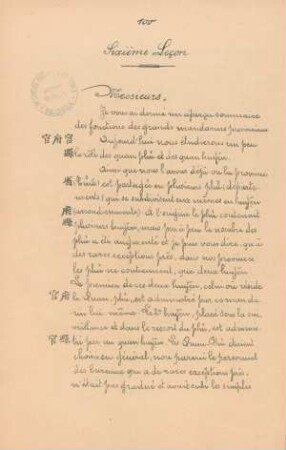 100
Sixième Leçon
Messieurs,
Je vous ai donné un aperçu sommaire
des fonctions des grands mandarins provinciaux
官府 Aujourd'hui nous étudierons un peu
官縣 le rôle des quan phủ et des quan huyện.
Ainsi que nous l'avons déjà vu la province
(tỉnh) est partagée en plusieurs phủ (départe-
ments) qui se subdivisent eux-mêmes en huyện
(arrondissements). A l'origine le phủ contenait
plusieurs huyện, mais peu à peu le nombre des
phủ a été augmenté et je puis vous dire, qu'à
des rares exceptions près, dans nos provinces
les phủ ne contiennent, que deux huyện.
Le premier de ces deux huyện, celui où réside
官府 le Quan phủ, est administré par ce manda-
rin lui même. Le 2e huyện, placé sous la sur-
veillance et dans le ressort du phủ, est adminis-
官縣 tré par un quan huyện. Les Quan Phủ étaient
choisis en général, non parmi le personnel
des bureaux qui à de rares exceptions près,
n'était pas gradué et avait subi les simples